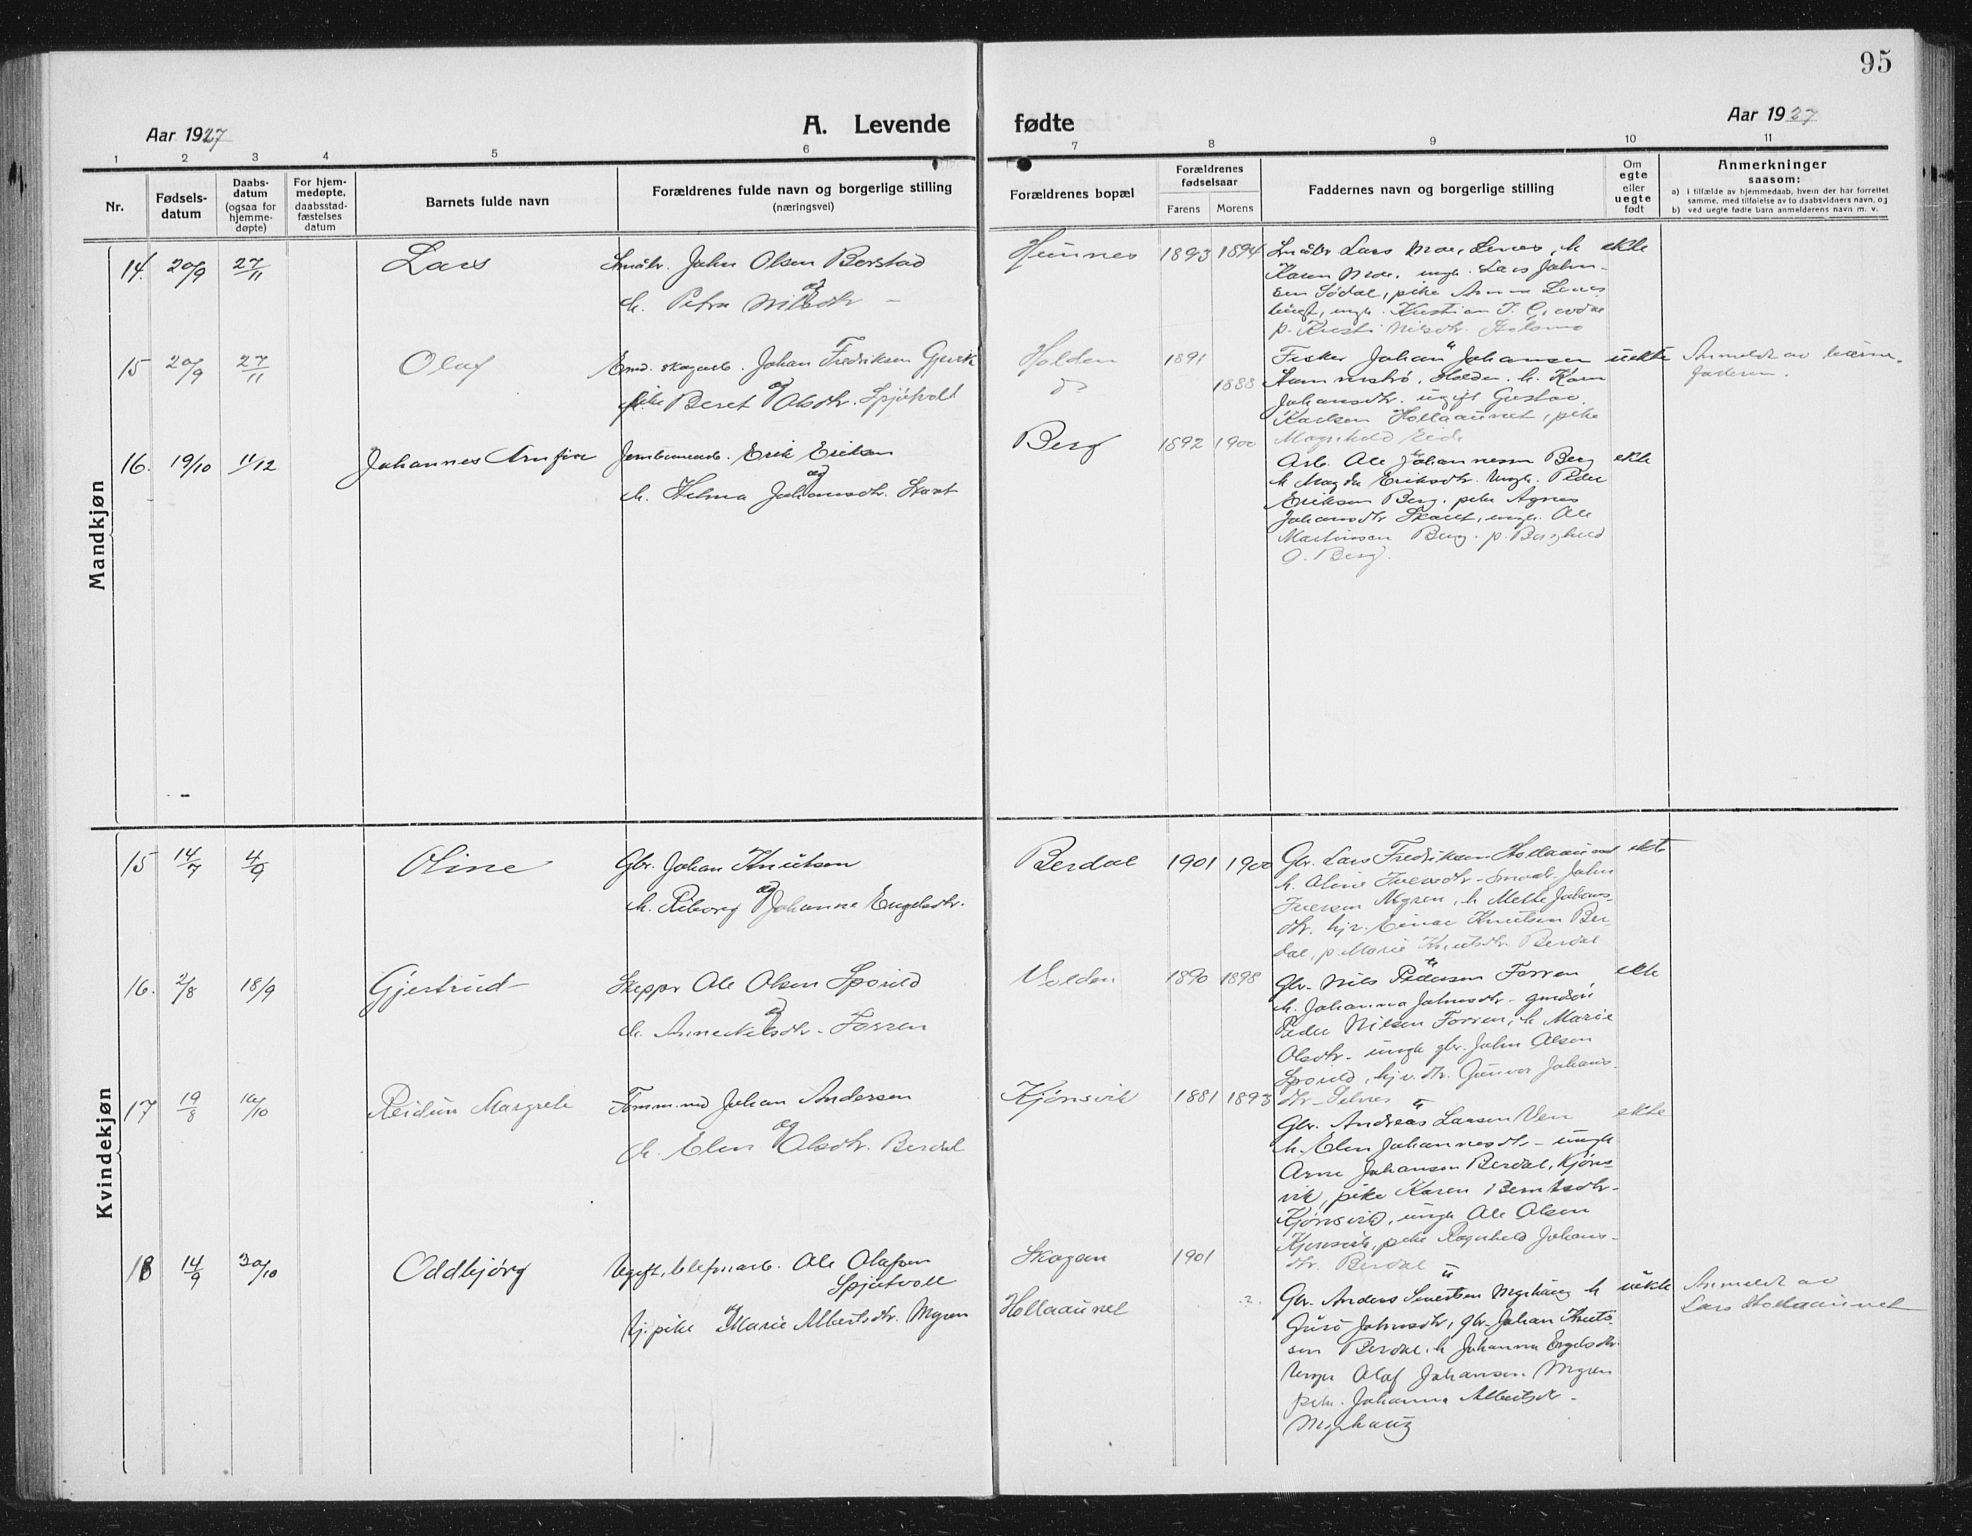 95
Aar 1927
A. Levende
fødte
Aar 1927
1 2 3 4 5 6 7 8 9 10 11
Nr.
Fødsels-
datum
Daabs-
datum
(ogsaa for
hjemme-
døpte)
For hjem-
medøpte,
daabsstad-
fæstelses
datum
Barnets fulde navn
Forældrenes fulde navn og borgerlige stilling
(næringsvei)
Forældrenes bopæl
Forældrenes
fødselsaar
Farens Morens
Faddernes navn og borgerlige stilling
Om
egte
eller
uegte
født
Anmerkninger
saasom:
a) i tilfælde av hjemmedaab, hvem der har forrettet
samme, med tilføielse av to daabsvidners navn, og
b) ved uegte fødte barn anmelderens navn m. v.
Mandkjøn
14. 20/9 27/11 Lars
John Olsen Berstad
og
h. Petra Nilsdtr
Hunnes 1893 1894
Lars Moe, h.
Karen Moe, ungk. Lars John-
sen Sødal, pike Anna
ungk. Kristian
p. Nilsdtr.
ekte
15 20/9 27/11 Olaf
Johan Fredriksen Gjevik
og
pike Beret Olsdtr. Spjutvold
Holden 1891
do 1888
Fisker Johan Johansen
Holden. h. Karn
Johansdtr. ugift Gustav
Karlsen Hollaaunet, pike
Magnhild Eide
uekte
Anmeldt av barne-
faderen.
16. 19/10 11/12 Johannes Arnfinn
Erik Eriksen
og
h. Helma Johansdtr. Skaret
Berg 1892 1900
Arb. Ole Johannesen Berg
h Magda Eriksdtr. Ungk. Peder
Eriksen Berg. pike Agnes
Johansdtr Skaret, ungk. Ole
Martinsen Berg. p. Borghild
O. Berg.
ekte
Kvindekjøn
15 14/7 4/9 Oline
Gbr. Johan Knutsen
og
h. Johanna Engelsdtr.
Berdal 1901 1900
Gbr. Lars Fredriksen Hollaaunet
h. Oline Iversdtr - John
Iversen Myren, h Mette Johans-
dtr. hjv. Einar Knutsen Ber-
dal, p. Marie Knutsdtr Berdal
ekte
16. 2/8 18/9 Gjertrud
Skeppr Ole Olsen
og
h. Anne Nilsdtr - Forren
Volden 1890 1898
Gbr. Nils Pedersen Forren
h. Johanna Johnsdtr -
Peder Nilsen Forren, h Marie
Olsdtr - ungk gbr. John Olsen
Gunvor Johans-
dtr - Selnes
ekte
17 19/8 16/10 Reidun Margrete
Tømm.md Johan Andersen
og
h. Elen Olsdtr. Berdal
Kjønsvik 1881 1893
Gbr. Andreas Larsen Ven
h. Elen Johannesdtr - ungk
Arne Johansen Berdal, Kjøns-
vik, pike Karen Berntsdtr -
Kjønsvik, ungk Ole Olsen
Kjønsvik, pike Ragnhild Johans-
dtr. Berdal
ekte
18 14/9 30/10 Oddbjørg
Ugift, telefonarb. Ole Olafsen
Spjutvold
og
tj. pike Marie Albertsdtr. Myren
Skogan 1901
Hollaaunet ?
Gbr. Anders Sivertsen Myrhaug h
Guro Johnsdtr, gbr. Johan Knut-
sen Berdal. h Johanna Engelsdtr.
Ungk Olaf Johansen Myren
pike. Johanna Albertsdtr -
Myrhaug
uekte
Anmeldt av
Lars Hollaaunet